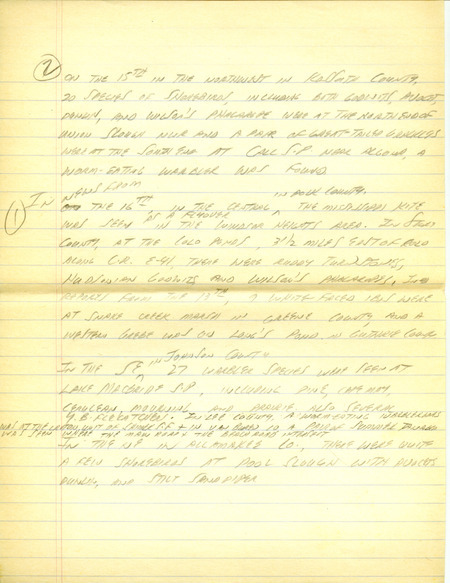 ② ON THE 15TH IN THE NORTHWEST IN KOSSUTH COUNTY,
20 SPECIES OF SHOREBIRDS, INCLUDING BOTH GODWITS, AVOCET,
DUNLIN, AND WILSON'S PHALAROPE WERE AT THE NORTH END OF
UNION SLOUGH NWR AND A PAIR OF GREAT-TAILED GRACKLES
WERE AT THE SOUTH END. AT CALL S.P. NEAR ALGONA, A
WORM-EATING WARBLER WAS FOUND.
① IN NEWS FROM
THE 16TH IN THE CENTRAL IN POLK COUNTY, THE MISSISSIPPI KITE
WAS SEEN AS A FLYOVER IN THE WINDSOR HEIGHTS AREA. IN STORY
COUNTY, AT THE COLO PONDS, 3 1/2 MILES EAST OF COLO
ALONG C.R. E-41, THERE WERE RUDDY TURNSTONES,
HUDSONIAN GODWITS AND WILSON'S PHALAROPES. IN
REPORTS FROM THE 15TH, 9 WHITE FACED IBIS WERE
AT SNAKE CREEK MARSH IN GREENE COUNTY AND A
WESTERN GREBE WAS ON LAKE'S POND IN GUTHRIE COUNTY
IN THE SE, IN JOHNSON COUNTY 27 WARBLER SPECIES WERE SEEN AT
LAKE MACBRIDE S.P., INCLUDING PINE, CAPE MAY,
CERULEAN, MOURNING AND PRAIRIE, ALSO SEVERAL
Y.B. FLYCATCHERS. IN LEE COUNTY, A WORM EATING WARBLER
WAS AT THE UNIT OF S.F. & IN VAN BUREN CO A PAIR OF SUMMER TANAGER
WAS SEEN NEAR THE
IN THE NE IN ALLAMAKEE CO., THERE WERE QUITE
A FEW SHOREBIRDS AT POOL SLOUGH WITH AVOCETS
DUNLIN, AND STILT SANDPIPER